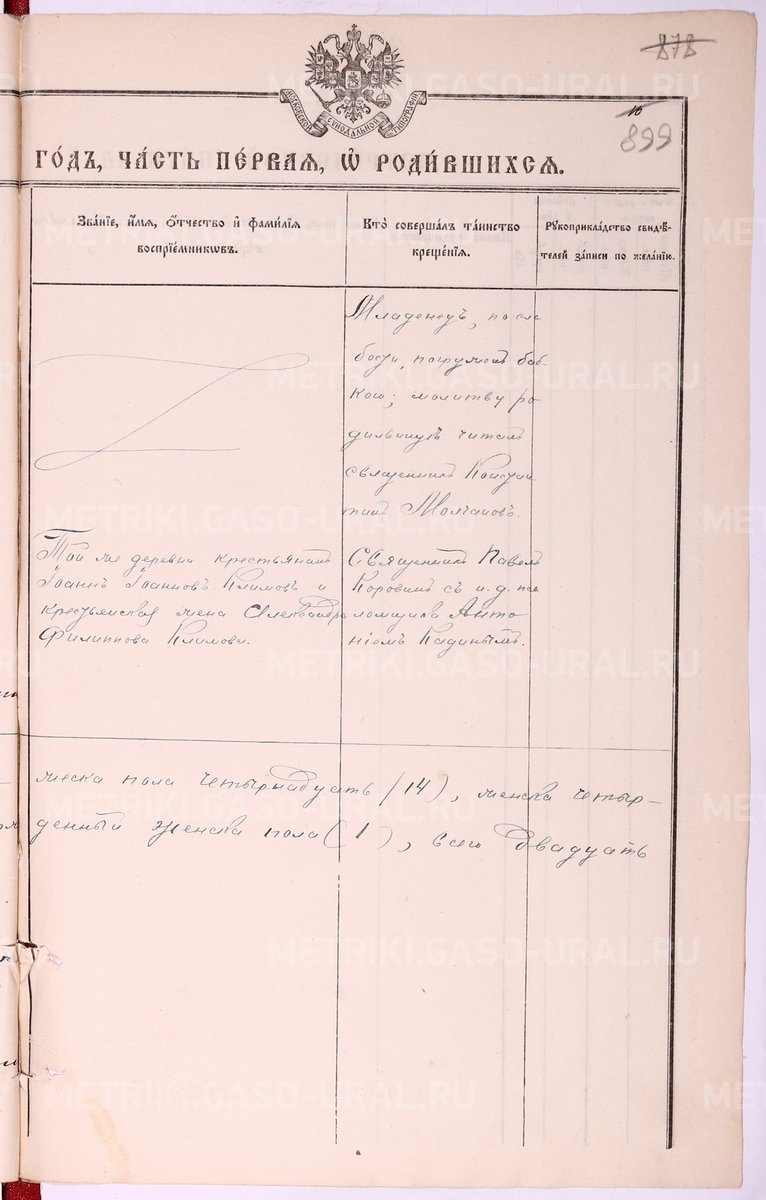 878
10
899
МОСКОВСКОЙ СѴНОДАЛЬНОЙ ТИПОГРАФІИ
ГО́ДЪ, ЧА́СТЬ ПЕ́РВАЯ, Ѽ РОДИ́ВШИХСЯ.
Зва́нїе, и҆́мя, ѻ҆́тчество и҆ фами́лїя
воспрїе́мникѡвъ.
Кто̀ соверша́лъ та́инство
креще́нїя.
Рꙋкоприкла́дство свидѣ́-
телей за́писи по жела́нїю.
Младенецъ, после
погружонъ баб-
кою; молитву ро-
дильницѣ читалъ
священникъ Констан
тинъ Молчановъ.
Той же деревни крестьянинъ
Іоаннъ Іоанновъ Климовъ и
крестьянская жена Александра
Филиппова Климова.
Священникъ Павелъ
Коровинъ съ и. д. пса
ломщика Анто-
ніемъ Кадинымъ.
жеска пола четырнадцать (14), женска четыр-
денный женска пола (1), всего двадцать
METRIKI.GASO-URAL.RU